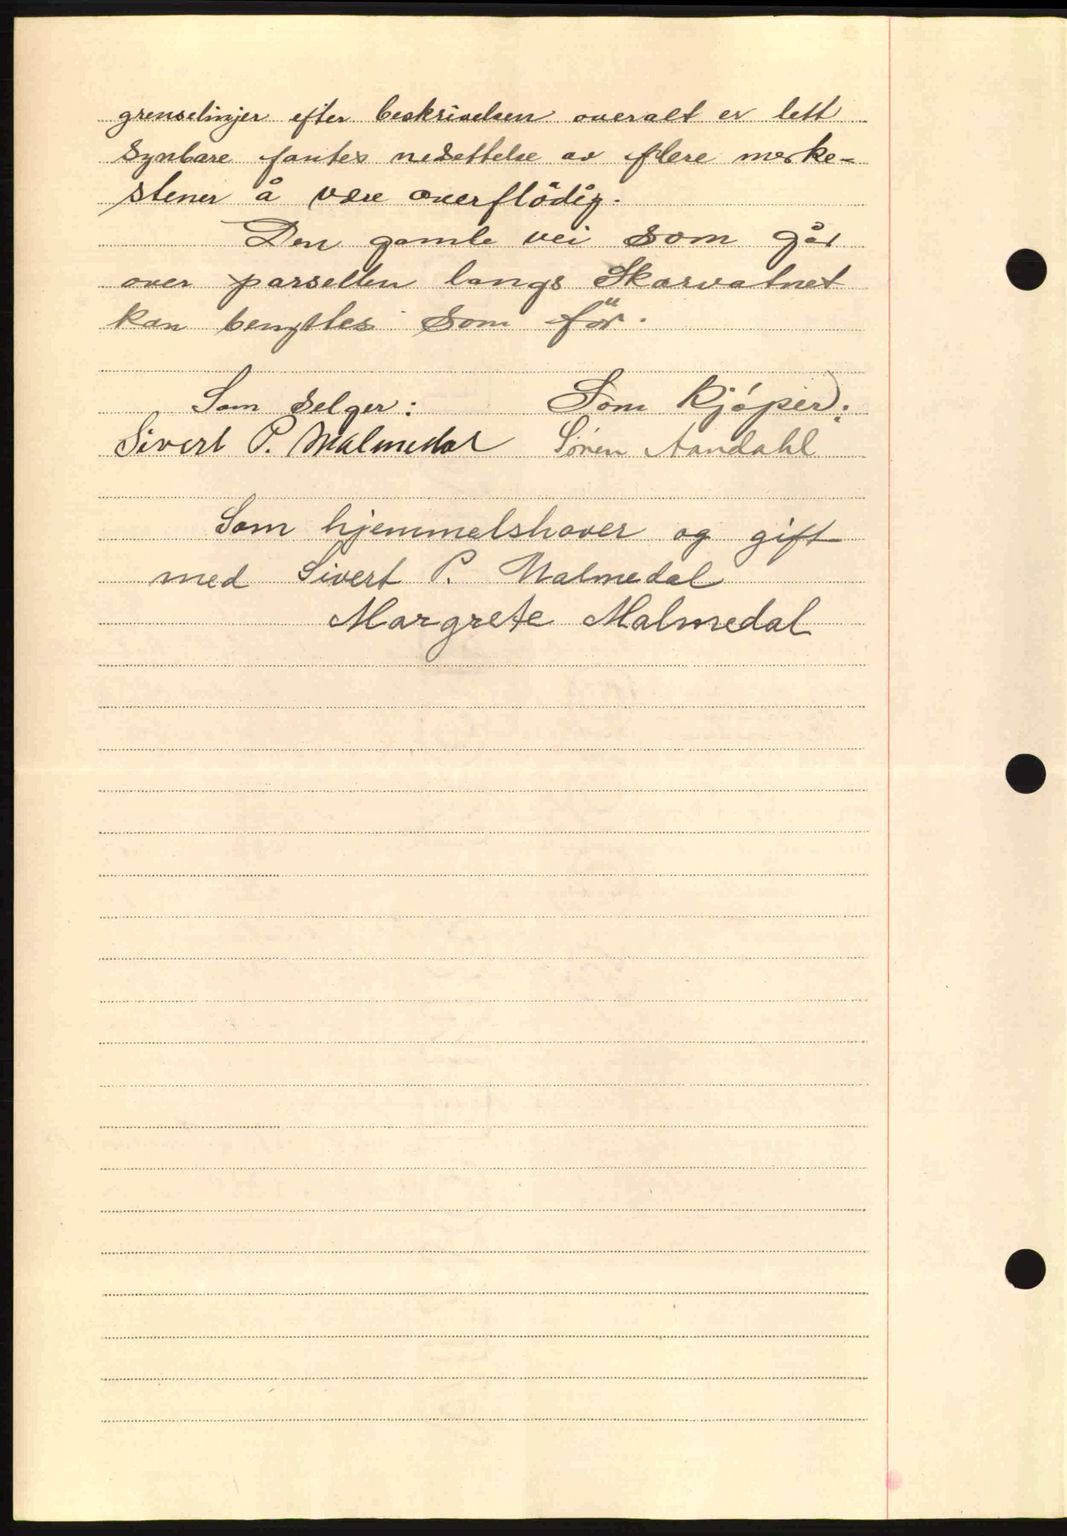 grenselinjer efter beskrivelsen overalt er lett
synbare fantes nedsettelse av flere merke-
stener å være overflödig.
Den gamle vei som går
over parsellen langs Skarvatnet
kan benyttes som för.
Som selger: Som kjóper:
Sivert P. Malmedal Søren Aandahl
Som hjemmelshaver og gift
med Sivert P. Malmedal
Margrete Malmedal